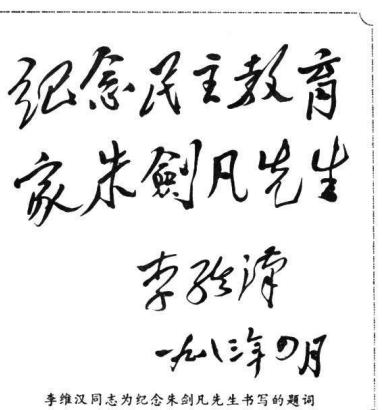 纪念民主教育
家朱劍凡先生
李维漢
一九八三年四月
李维汉同志为纪念朱剑凡先生书写的题词